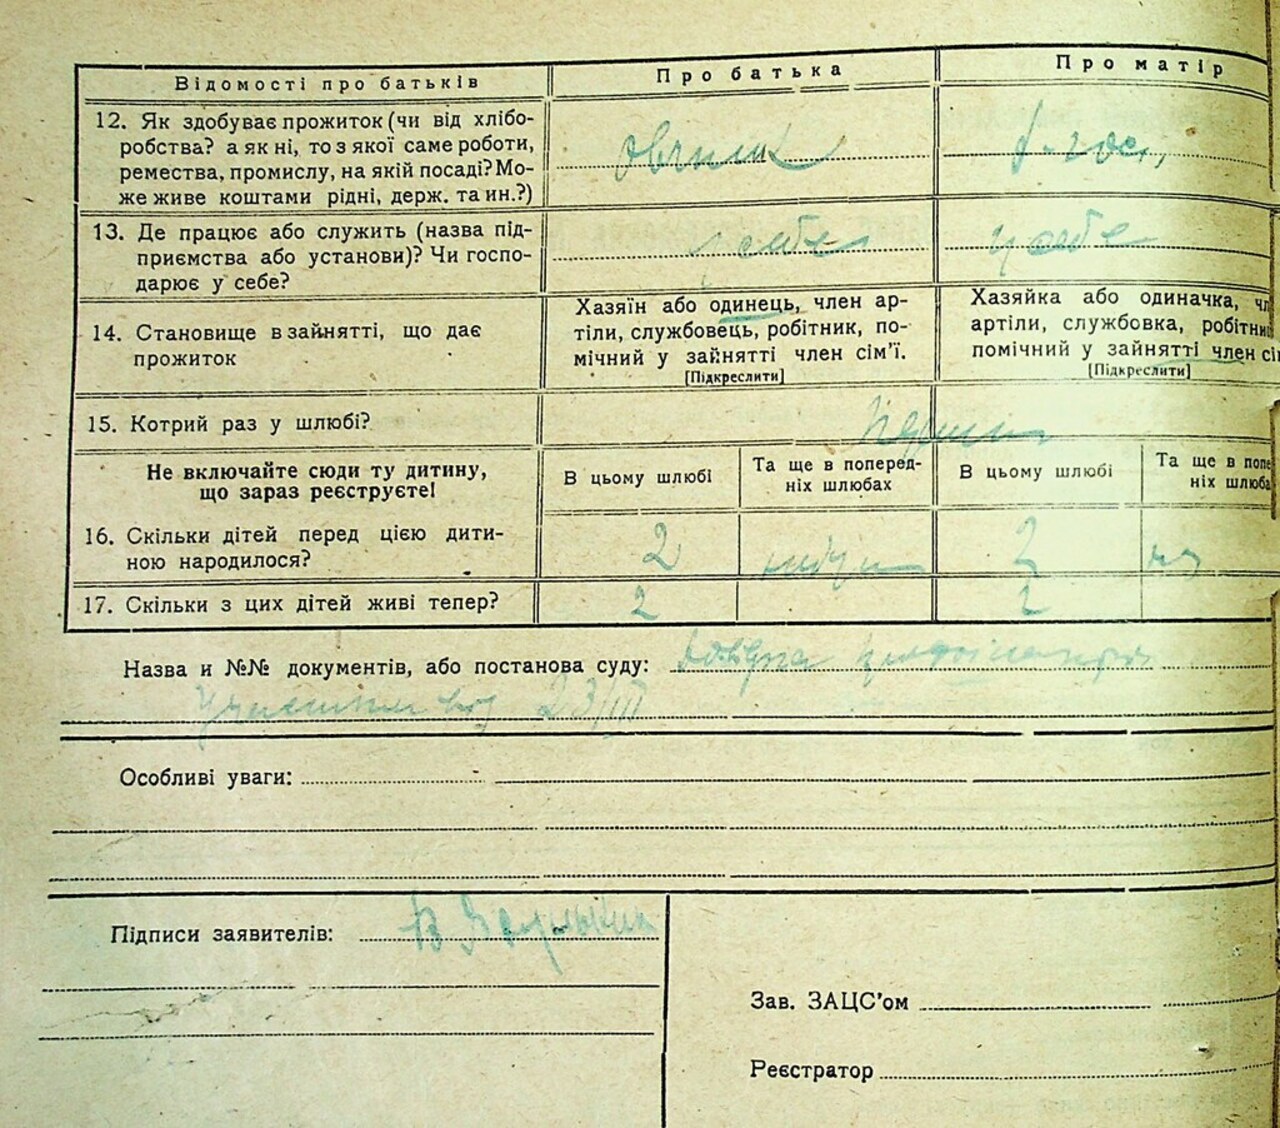 Відомості про батьків
Про батька
Про матір
12. Як здобуває прожиток (чи від хлібо-
робства? а як ні, то з якої саме роботи,
ремества, промислу, на якій посаді? Мо-
же живе коштами рідні, держ. та ин.?)
х-гос.,
13. Де працює або служить (назва під-
приємства або установи)? Чи госпо-
дарює у себе?
у себе
у себе
14. Становище в зайнятті, що дає
прожиток
Хазяїн або одинець, член ар-
тіли, службовець, робітник, по-
мічний у зайнятті член сім'ї.
[Підкреслити]
Хазяйка або одиначка, чл
артіли, службовка, робітни
помічний у зайнятті член сі
[Підкреслити]
15. Котрий раз у шлюбі?
Не включайте сюди ту дитину,
що зараз реєструєте!
В цьому шлюбі
Та ще в поперед-
ніх шлюбах
В цьому шлюбі
Та ще в попе
ніх шлюба
16. Скільки дітей перед цією дити-
ною народилося?
2
2
17. Скільки з цих дітей живі тепер?
2
2
Назва и №№ документів, або постанова суду:
23/III
Особливі уваги:
Підписи заявителів:
Зав. ЗАЦС'ом
Реєстратор